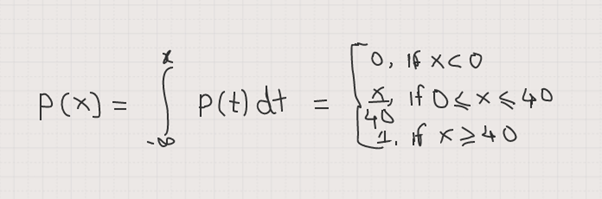 P(x) = ∫_{-∞}^{x} P(t) dt = { 0, if x < 0
x/40, if 0 ≤ x ≤ 40
1. if x ≥ 40